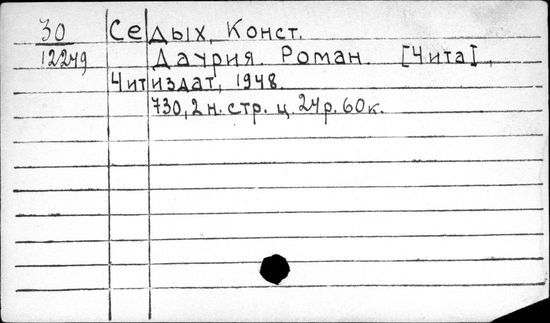 30 Седых, Конст.
12249 Даурия. Роман. [Чита],
Читиздат, 1948.
730, 2 н. стр. ц. 24р. 60к.